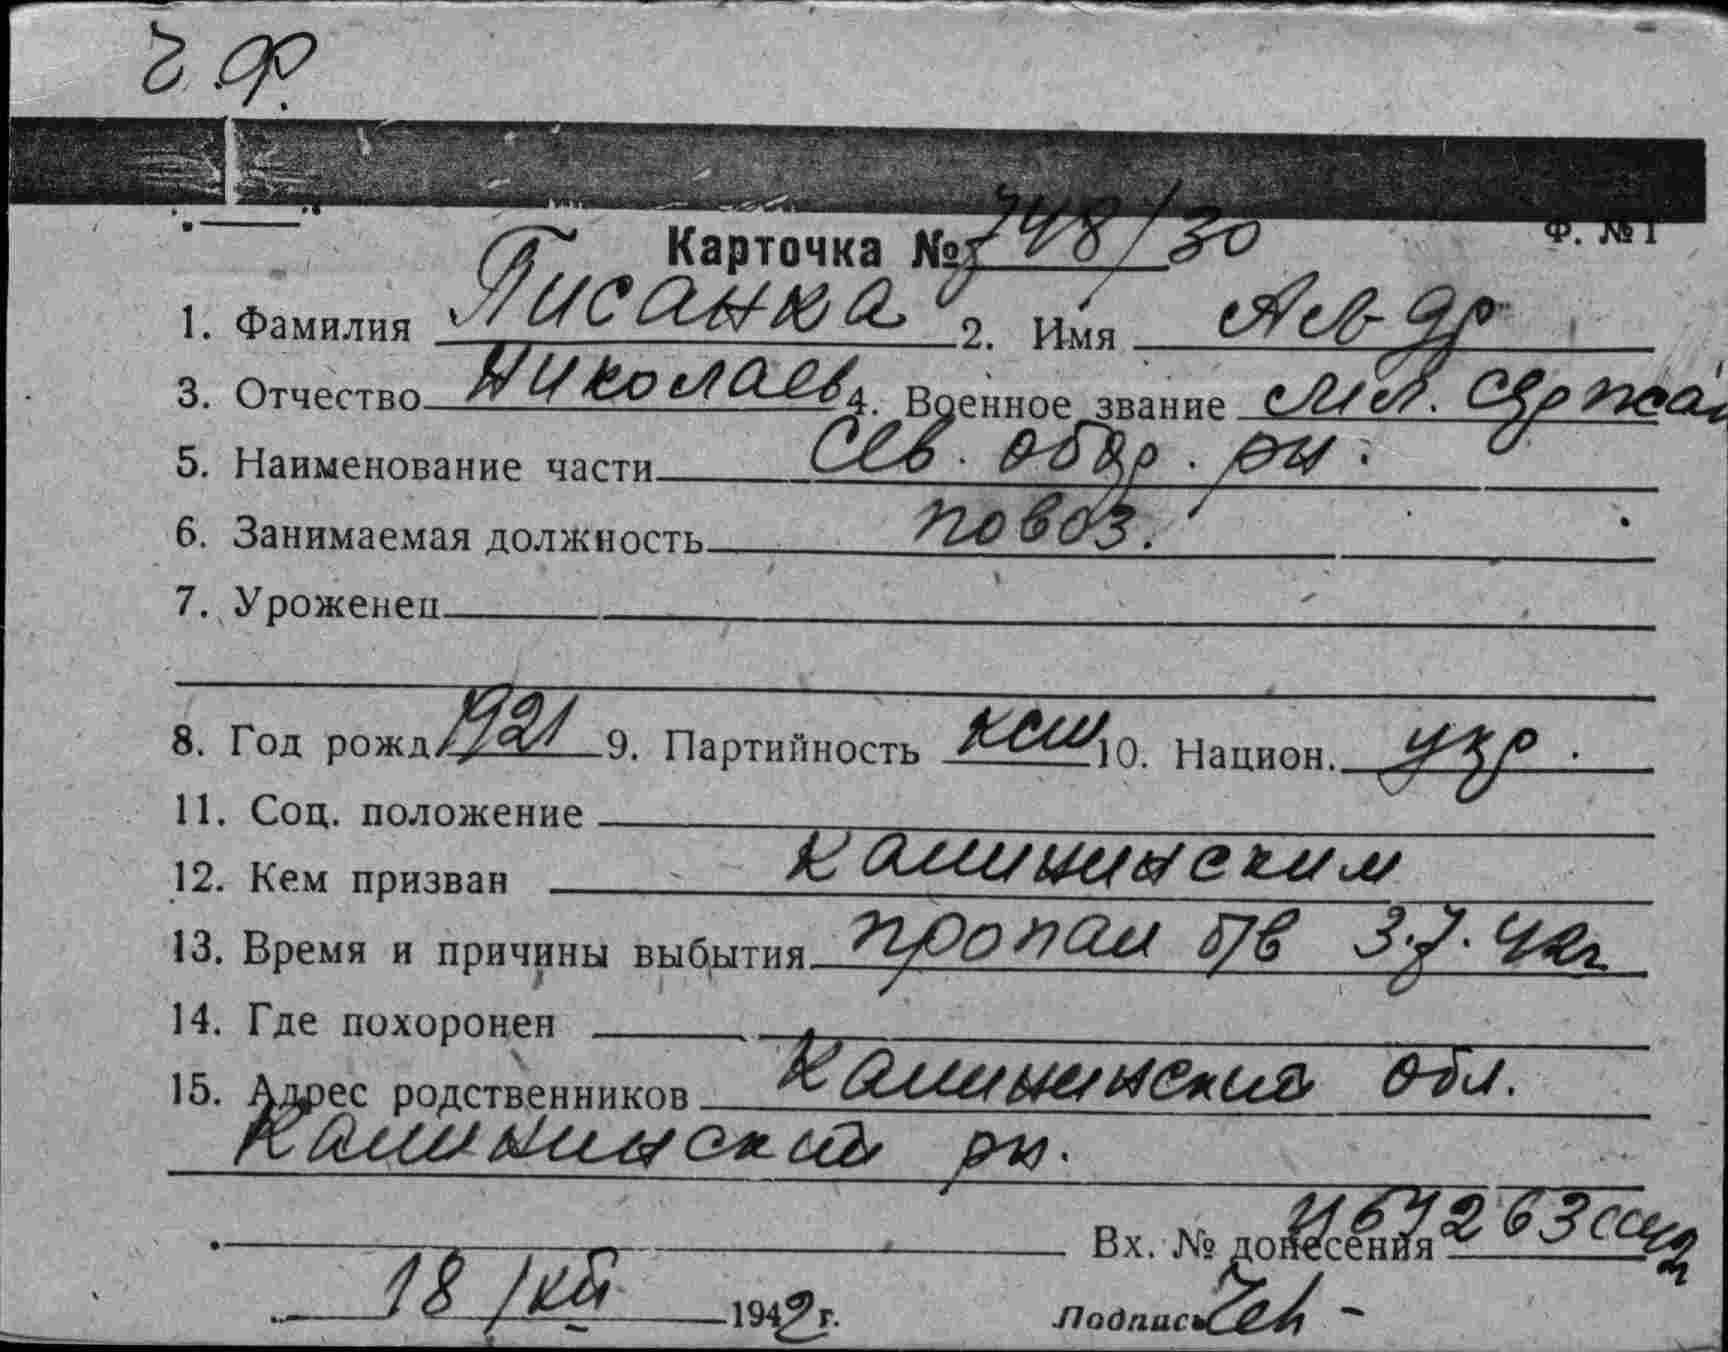 Ч.Ф.
Ф. №1
Карточка № 748/30
1. Фамилия Писанка 2. Имя Ал-др
3. Отчество Николаев 4. Военное звание мл. сержан
5. Наименование части Сев. обор. рн.
6. Занимаемая должность повоз.
7. Уроженец
8. Год рожд. 1921 9. Партийность ксм 10. Национ. укр.
11. Соц. положение
12. Кем призван Калининским
13. Время и причины выбытия пропал б/в 3.7.42г
14. Где похоронен
15. Адрес родственников Калининская обл.
Калининский рн.
Вх. № донесения
18/XII 1942 г. Подпись